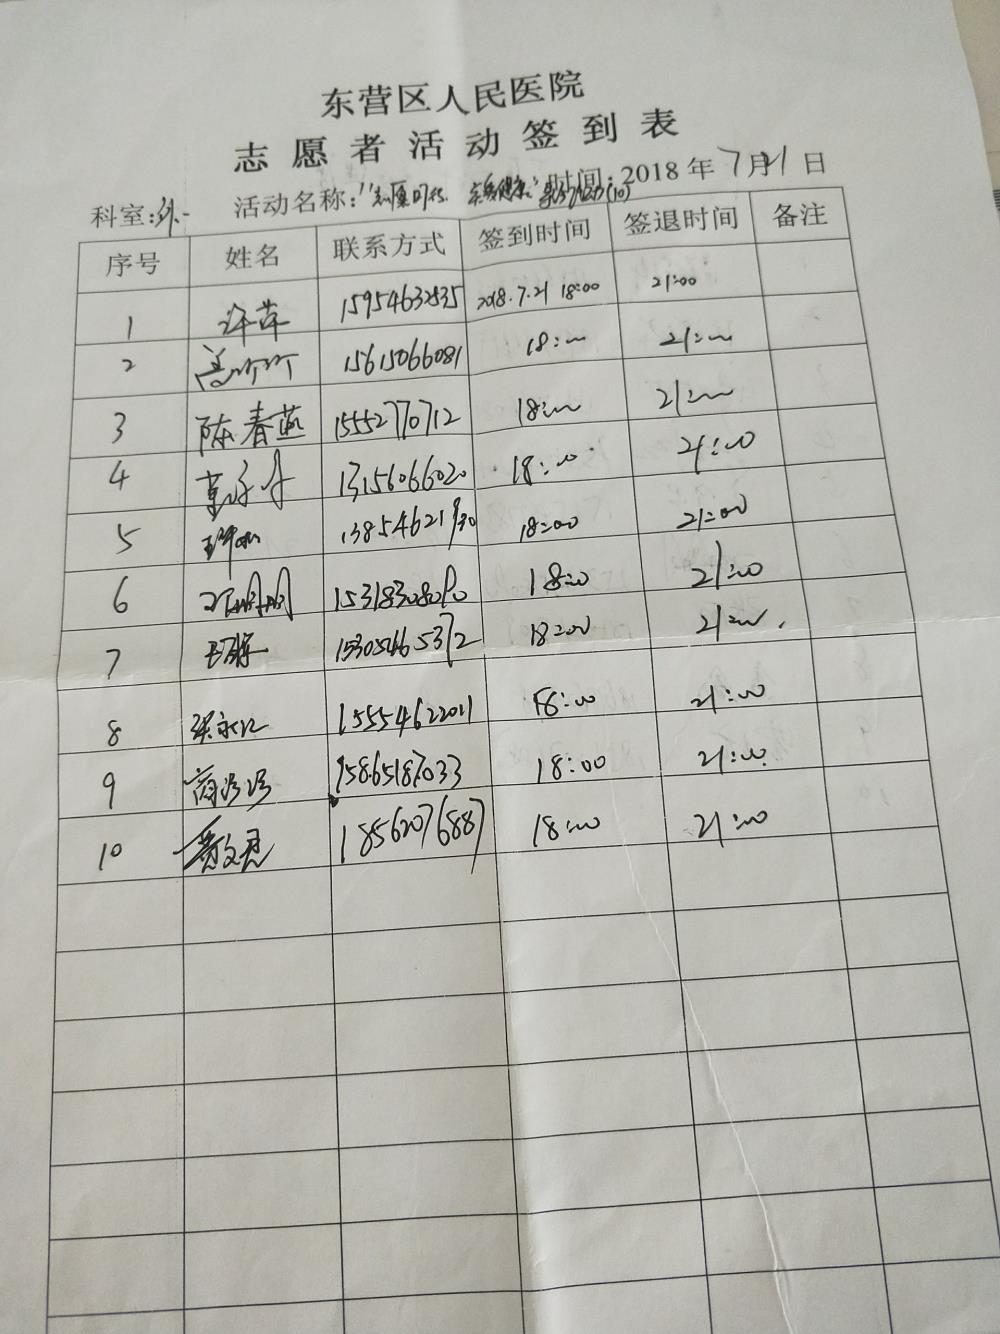 东营区人民医院
志愿者活动签到表
科室:外一 活动名称:"志愿 时间:2018年7月21日
序号 姓名 联系方式 签到时间 签退时间 备注
1 许萍 15954632835 2018.7.21 18:00 21:00
2 15615066081 18:00 21:00
3 陈春燕 15552770712 18:00 21:00
4 13156066020 18:00 21:00
5 18:00 21:00
6 18:00 21:00
7 18:00 21:00
8 张永江 15554622011 18:00 21:00
9 商珍珍 15865187033 18:00 21:00
10 18562076887 18:00 21:00